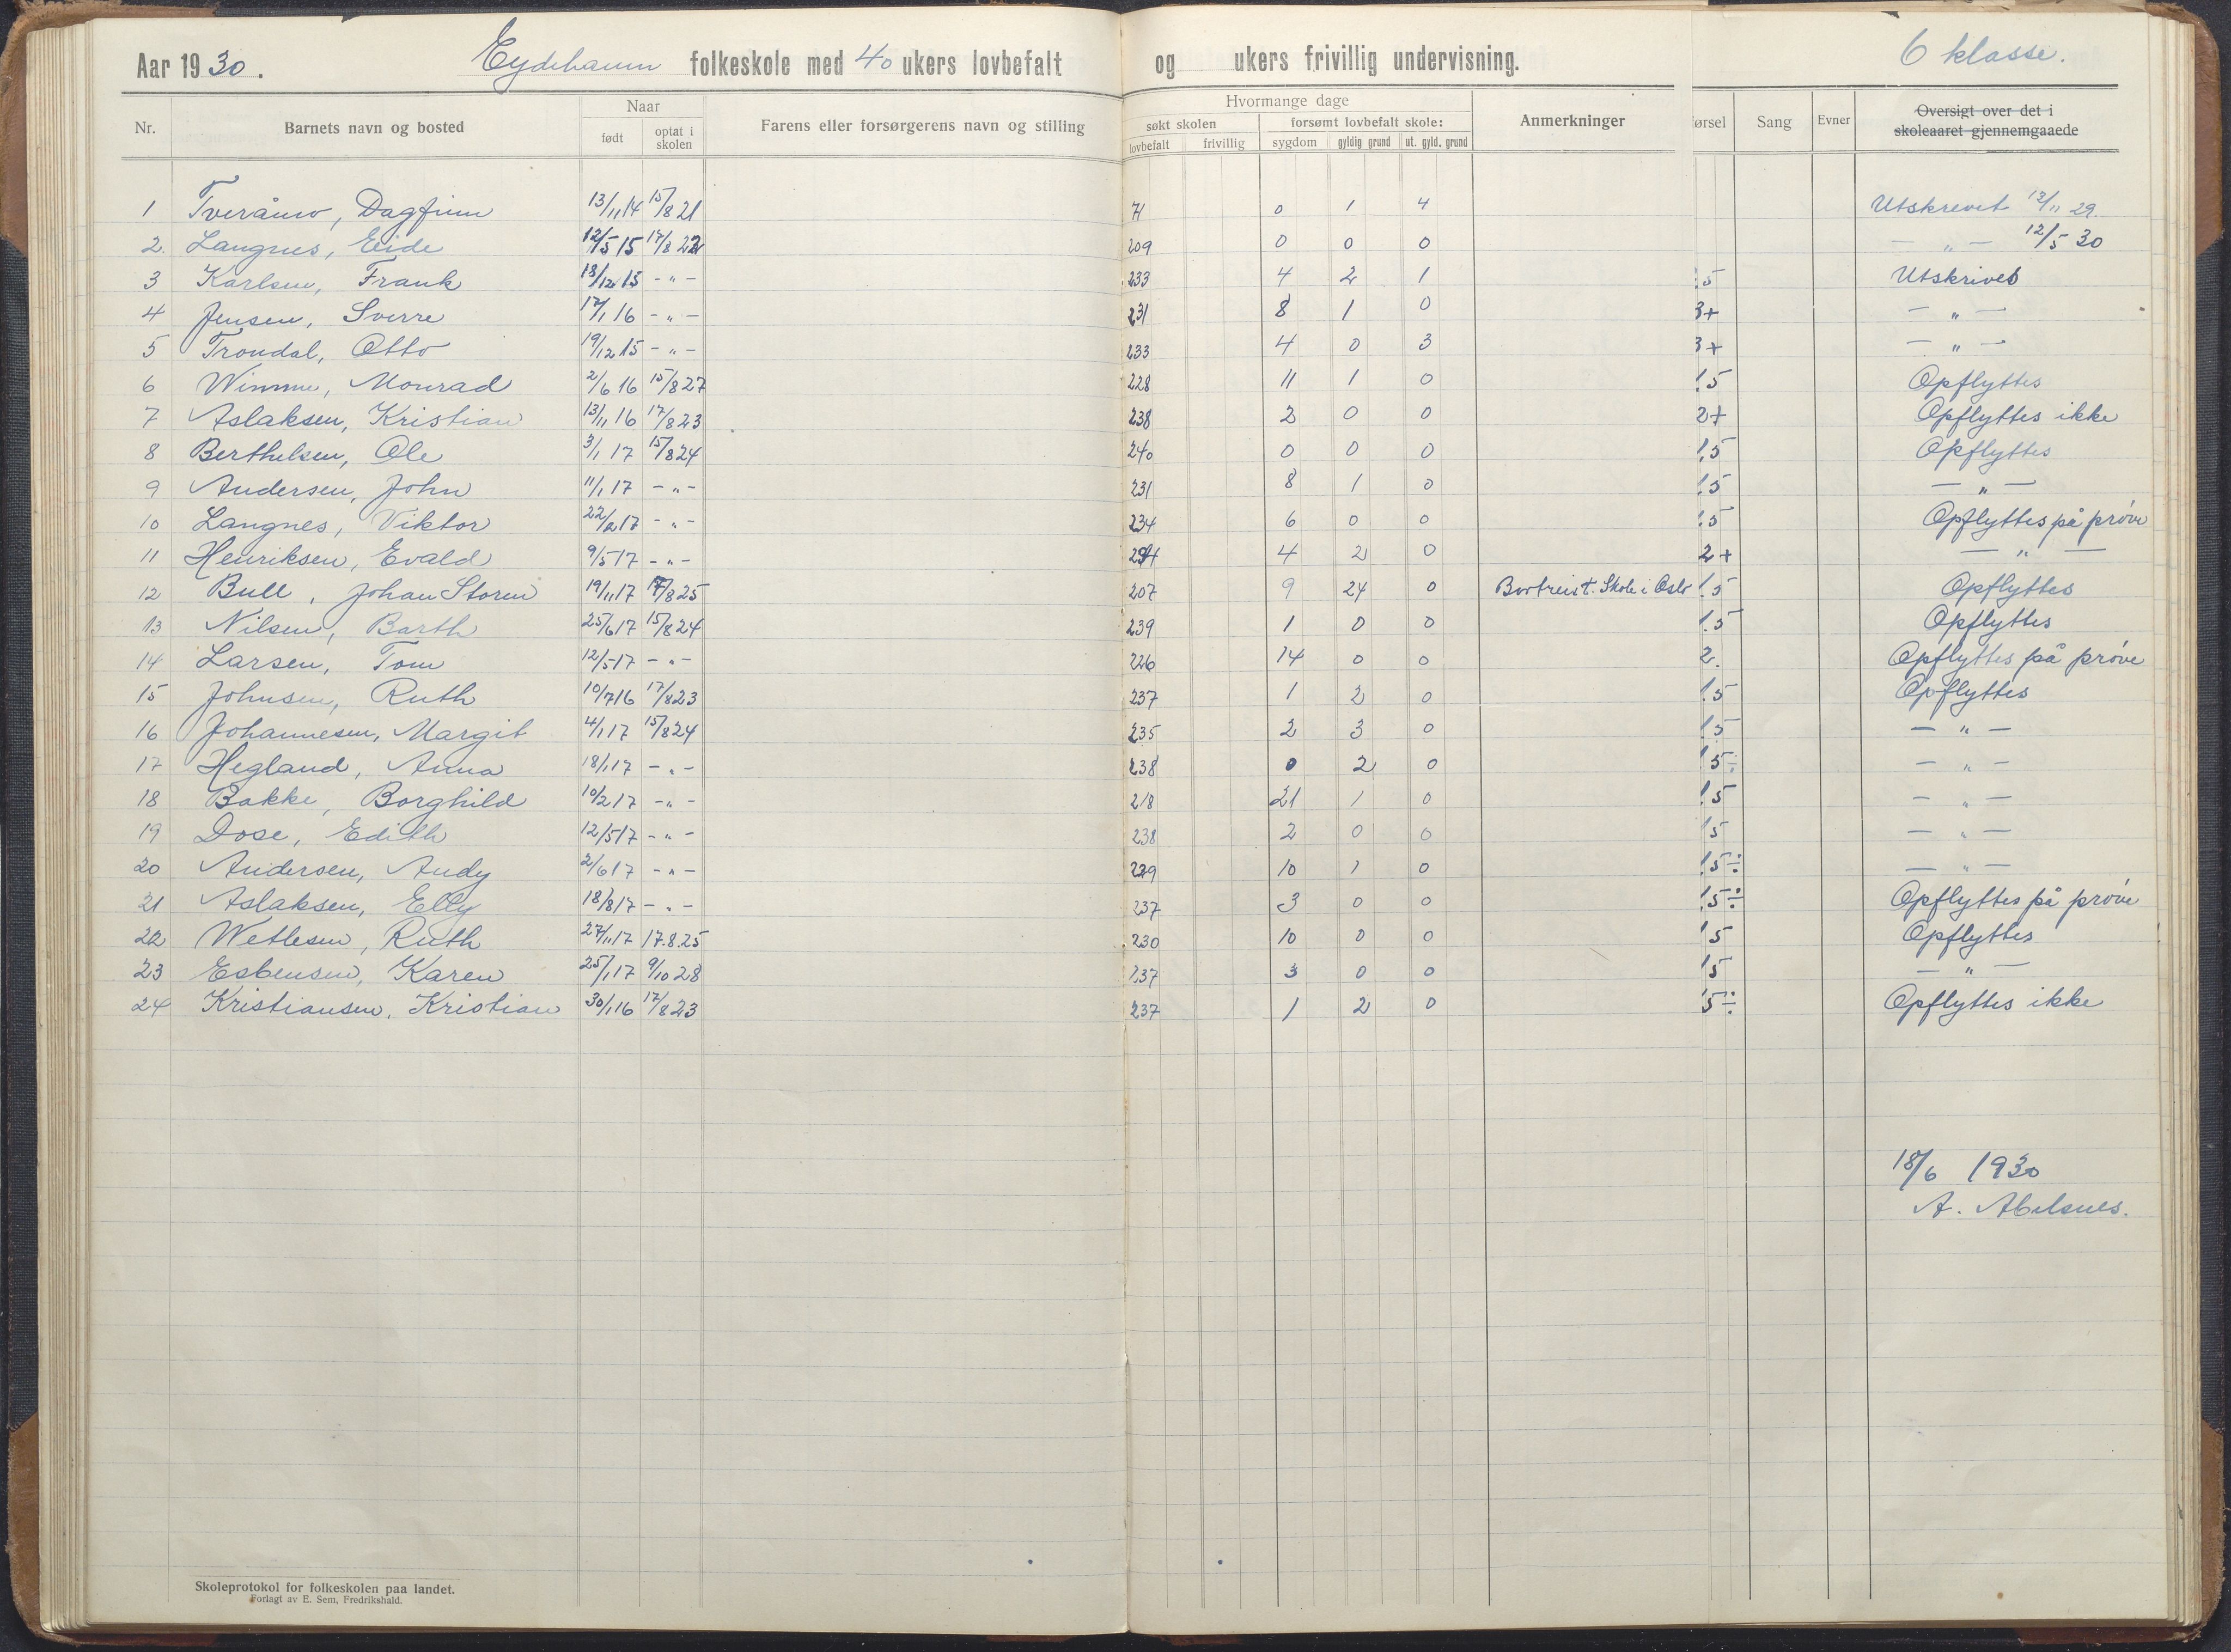 Aar 1930. Eydehavn folkeskole med 40 ukers lovbefalt og ukers frivillig undervisning. 6 klasse.
Nr. Barnets navn og bosted Naar født optat i skolen Farens eller forsørgerens navn og stilling Hvormange dage søkt skolen lovbefalt frivillig forsømt lovbefalt skole: sygdom gyldig grund ut. gyld. grund Anmerkninger ørsel Sang Evner Oversigt over det i skoleaaret gjennemgaaede
1 Tveråmo, Dagfinn 13/11 14 15/8 21 71 0 1 4 Utskrevet 12/11 29.
2. Langnes, Eide 12/5 15 17/8 22 209 0 0 0 — „ — 12/5 30
3 Karlsen, Frank 18/12 15 - „ - 233 4 2 1 .5 Utskrives
4 Jensen, Sverre 17/1 16 - „ - 231 8 1 0 3+ — „ —
5 Trondal, Otto 19/12 15 - „ - 233 4 0 3 3+ — „ —
6 Wimme, Monrad 2/6 16 15/8 27 228 11 1 0 1.5 Opflyttes
7 Aslaksen, Kristian 13/11 16 17/8 23 238 2 0 0 2+ Opflyttes ikke
8 Berthelsen, Ole 3/1 17 15/8 24 240 0 0 0 1.5 Opflyttes
9 Andersen, John 11/1 17 - „ - 231 8 1 0 1.5 — „ —
10 Langnes, Viktor 22/2 17 - „ - 234 6 0 0 1.5 Opflyttes på prøve
11 Henriksen, Evald 9/5 17 - „ - 234 4 2 0 2+ — „ —
12 Bull, Johan Storm 19/11 17 17/8 25 207 9 24 0 Bortreist. Skole i Oslo 1.5 Opflyttes
13 Nilsen, Barth 25/6 17 15/8 24 239 1 0 0 1.5 Opflyttes
14 Larsen, Tom 12/5 17 - „ - 226 14 0 0 2. Opflyttes på prøve
15 Johnsen, Ruth 10/7 16 17/8 23 237 1 2 0 1.5 Opflyttes
16 Johannesen, Margit 4/1 17 15/8 24 235 2 3 0 1.5 — „ —
17 Hegland, Anna 18/1 17 - „ - 238 0 2 0 1.5÷ — „ —
18 Bakke, Borghild 10/2 17 - „ - 218 21 1 0 1.5 — „ —
19 Dose, Edith 12/5 17 - „ - 238 2 0 0 1.5 — „ —
20 Andersen, Andy 2/6 17 - „ - 229 10 1 0 1.5÷ — „ —
21 Aslaksen, Elly 18/8 17 - „ - 237 3 0 0 1.5÷ Opflyttes på prøve
22 Wetlesen, Ruth 27/11 17 17.8.25 230 10 0 0 1.5 Opflyttes
23 Esbensen, Karen 25/1 17 9/10 28 237 3 0 0 1.5 — „ —
24 Kristiansen, Kristian 30/1 16 17/8 23 237 1 2 0 .5÷ Opflyttes ikke
18/6 1930
A. Abelsnes.
Skoleprotokol for folkeskolen paa landet.
Forlagt av E. Sem, Fredrikshald.